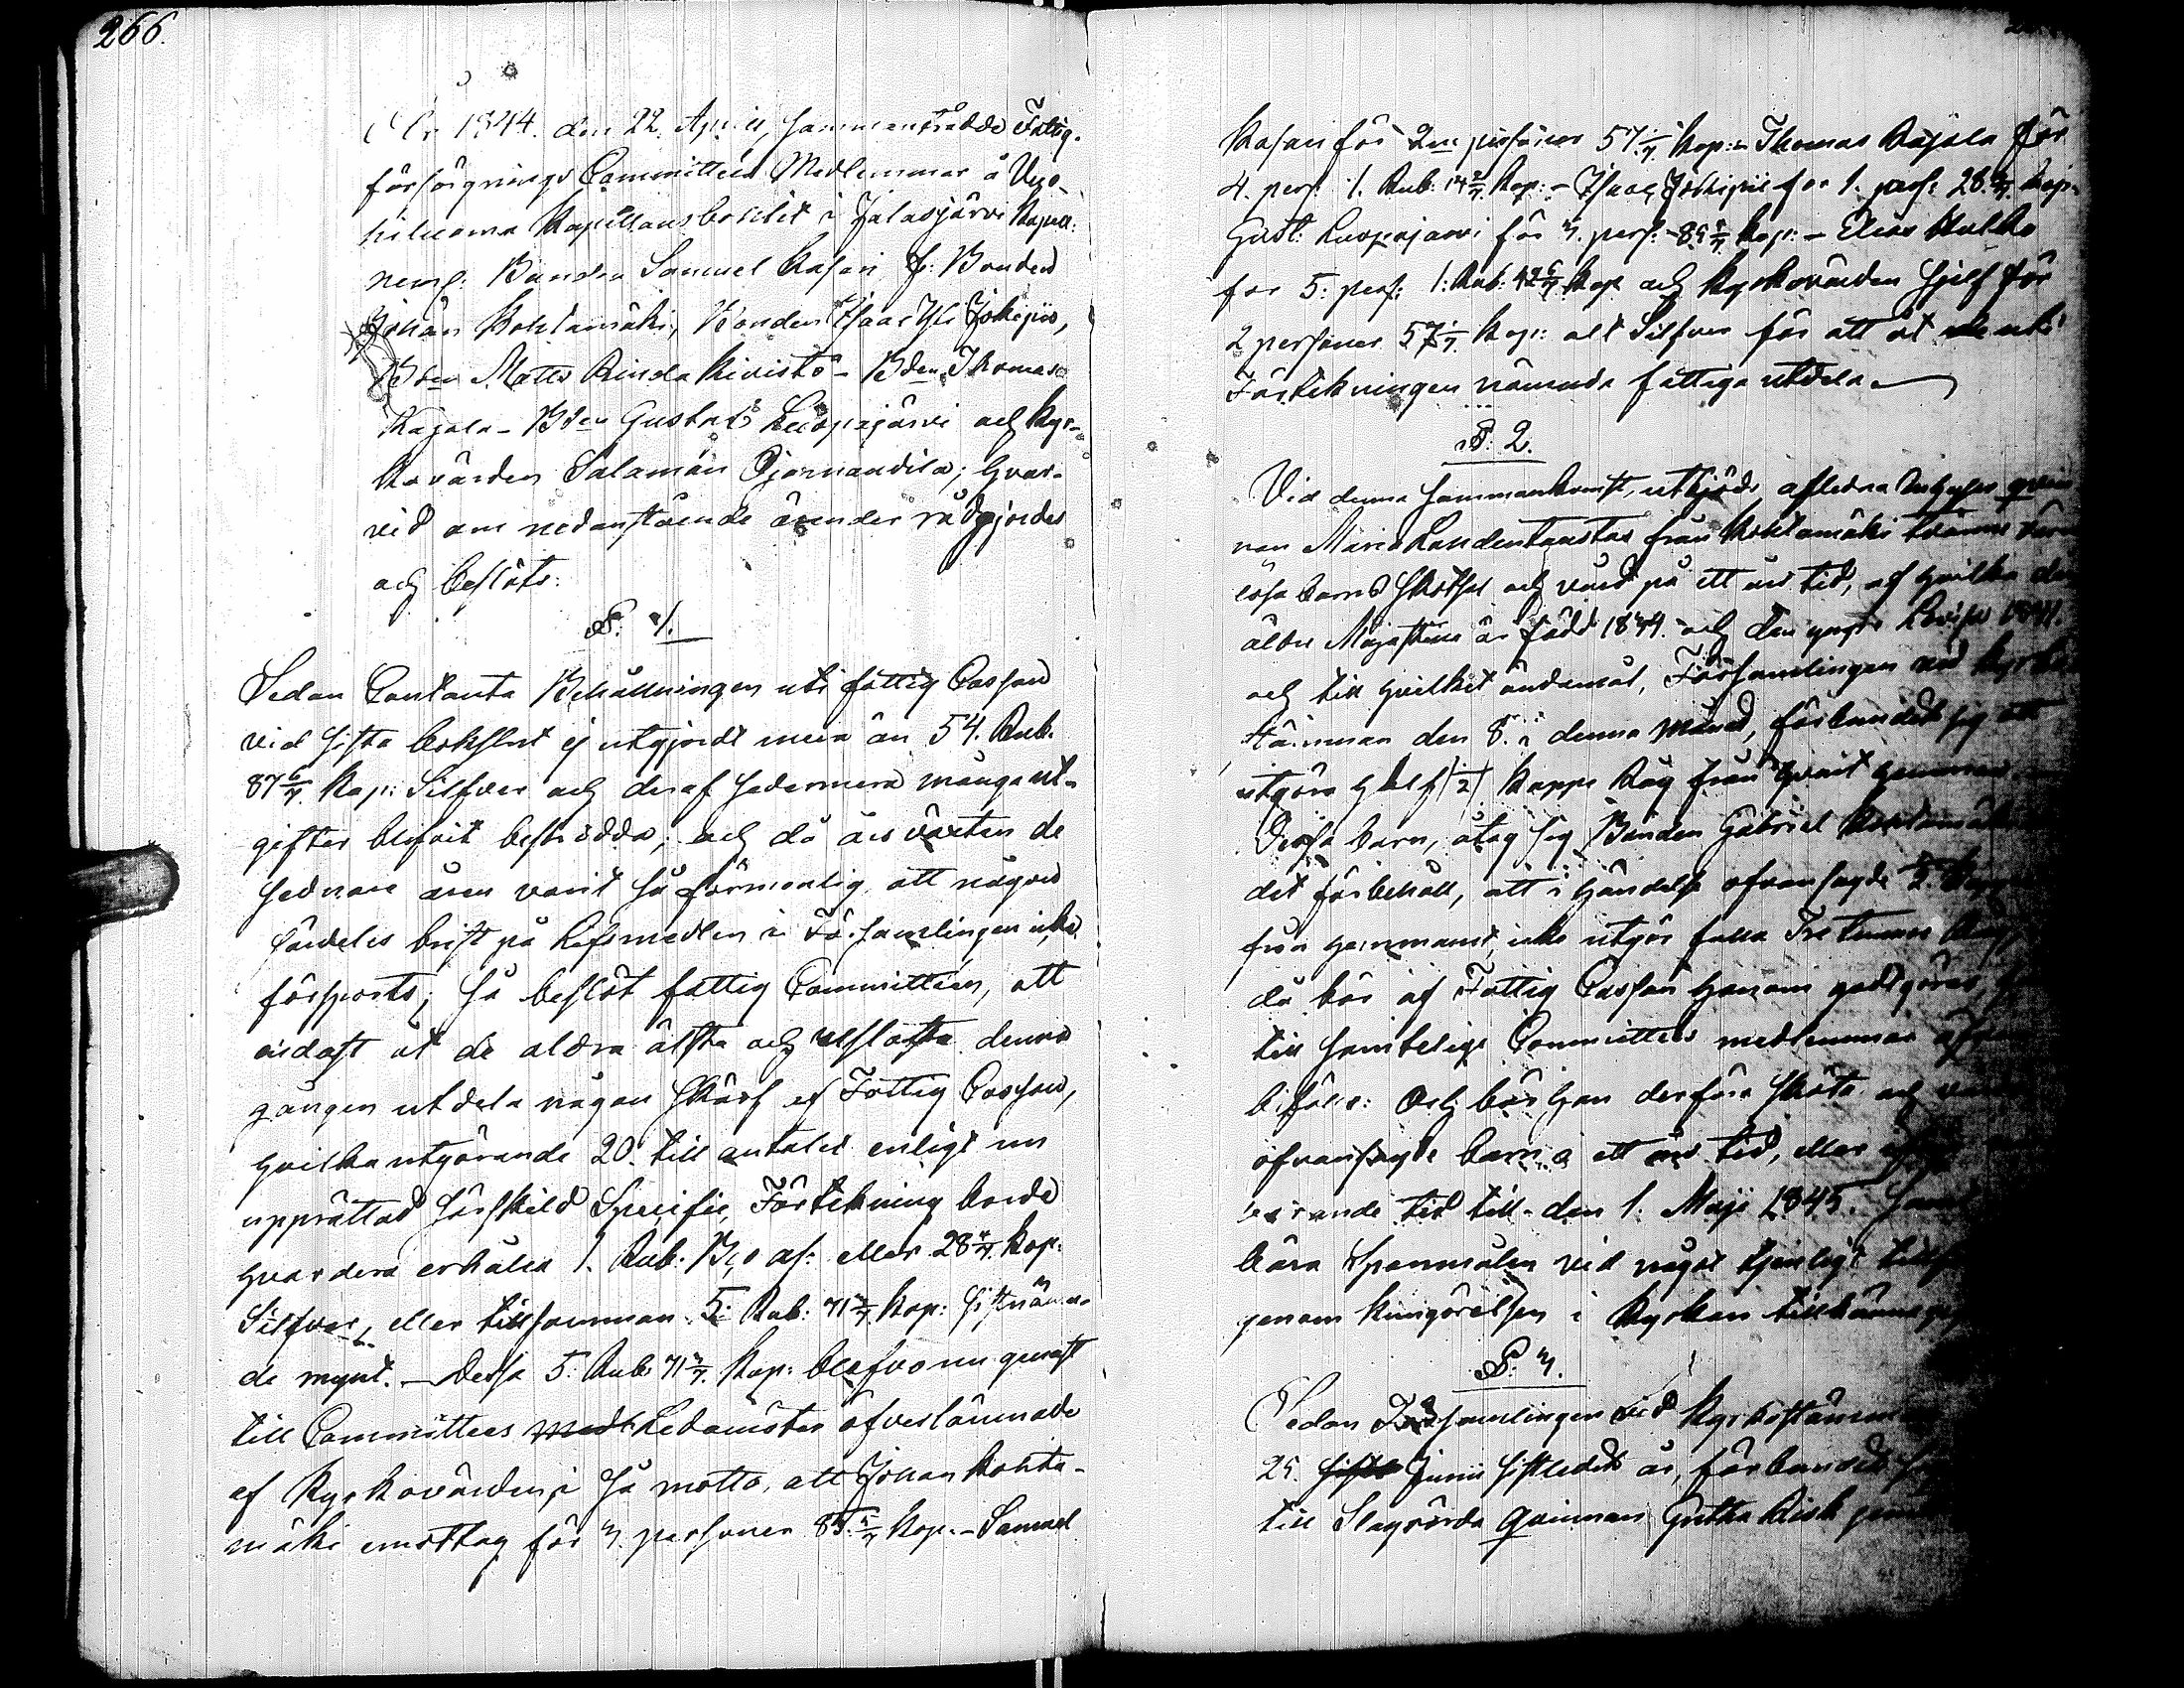 266.
År 1844. den 22. April, sammanträdde Fattig-
försörgnings Committéens Medlemmar å
Kapellansbohlet i Jalasjärvi Kapell:
neml: Bonden Samuel Kasari f: Bonden
Johan Kohtamäki, Bonden Isaac Yli Jokipii,
Bden Matts Rinda Kivistö - Bden Thomas
Kajala - Bden Gustaf Luopajärvi och Kyr-
kovärden Salamon; hvar-
vid om nedanstående ärender rådgjordes
och beslöts:
§. 1.
Sedan Contanta Behållningen uti fattig Cassan
vid sista bokslut ej utgjordt mera än 54. Rub.
87 6/7. Kop: Silfver och deraf sedermera många ut-
gifter blifvit bestridda; och då års växten de
sednare åren varit så förmonlig att någon
särdeles brist på lifsmedlen i Församlingen icke
försports; så beslöt fattig Committéen, att
endast åt de aldra älsta och uslasta denna
gången utdela någon skärf af Fattig Cassan,
hvilka utgörande 20. till antalet enligt nu
upprättad särskild Specific Förtekning borde
hvardera erhålla 1. Rub: B:co as: eller 28 4/7. Kop:
Silfver, eller tillsamman 5: Rub: 71 3/7. Kop: sistnämn-
de mynt. - Dessa 5: Rub: 71 3/7. Kop: blefvo nu genast
till Committees Ledamöter öfverlämnade
af Kyrkovärden, i så motto, att Johan Kohta-
mäki emottog för 3. personer 85 5/7 Kop. - Samuel
Kasari för 2ne personer 57 1/7. Kop: - Thomas Kajala för
4. pers: 1. Rub: 14 2/7 Kop: - Isaac Jokipii för 1. pers: 28 4/7 Kop:
Gust: Luopajärvi för 3. pers: - 85 5/7 Kop: - Elias Hukko
för 5: pers: 1: Rub: 42 6/7 Kop och Kyrkovärden sjelf för
2 personer 57 1/7. Kop: allt Silfver för att åt de uti
Förtekningen nämnda fattiga utdela.
§: 2.
Vid denna sammankomst, utbjöds aflidna Inhyses qvin
nan Maria Landentaustas från Kohtamäki tvänne värn
lösa barns skötsel och vård på ett års tid, af hvilka den
äldre Maja Stina är född 18 och den yngre Lovisa
och till hvilket ändamål, Församlingen vid Kyrko
stämman den 8. i denna månad, förbundit sig att
utgöra half (1/2) Kappe Råg från hvart hemman.
Dessa barn, åtog sig Bonden Gabriel Kohtamäki
det förbehåll, att i händelse ofvansagde 1/2 Kappe
från hemmanet, icke utgör fulla Tre tunnor Råg,
då bör af Fattig Cassan honom godtgöras,
till samtelige Committées medlemmar
biföllo: Och bör han derföre sköta och vårda
ofvansagde barn i ett års tid, eller
tid till den 1. Maji 1845.
bära Spanmålen vid något tjenligt
genom kungörelsen i Kyrkan
§. 3.
Sedan Församlingen vid Kyrkostämman
25. Junii sistledit år, förbundit
till Slagrörda qvinnan Greta Kisk